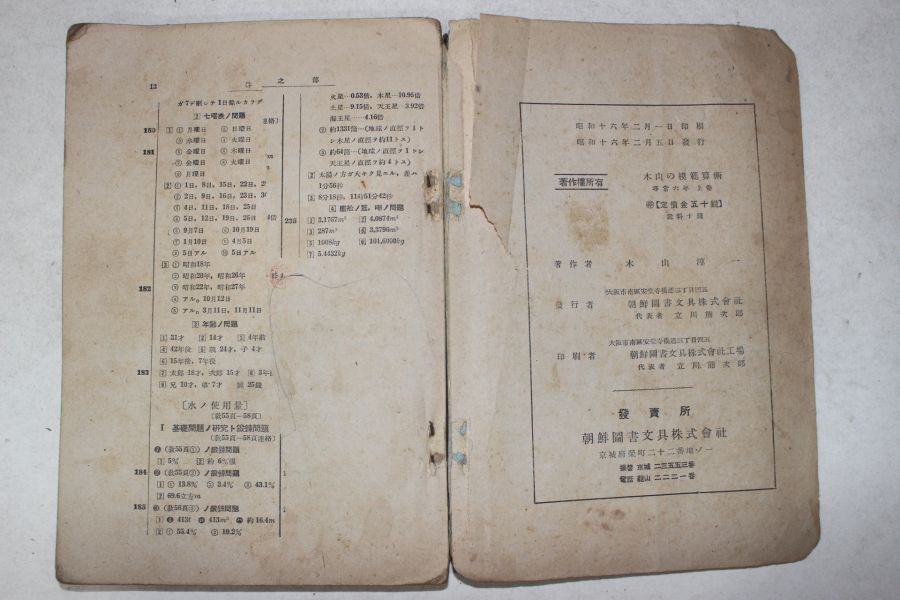 13
答之部
ガ7デ割レテ1日餘ルカラデ
② 七曜表ノ問題
180 1 ① 月曜日 ② 日曜日
③ 水曜日 ④ 火曜日
181 ⑤ 金曜日 ⑥ 木曜日
⑦ 金曜日 ⑧ 火曜日
⑨ 月曜日
2 ① 1日, 8日, 15日, 22日,
② 2日, 9日, 16日, 23日,
③ 4日, 11日, 18日, 25日
④ 5日, 12日, 19日, 26日
⑤ 9月7日 ⑥ 10月19日
⑦ 1月10日 ⑧ 4月5日
⑨ 5日アル ⑩ 5日アル
3 ① 昭和18年
② 昭和20年, 昭和26年
182 ③ 昭和22年, 昭和27年
④ アル。10月12日
⑤ アル。3月11日, 11月11日
③ 年齡ノ問題
1 31才 2 14才 3 4年前
4 42年後 5 親 24才, 子 4才
6 15年後, 7年後
183 7 太郎 18才, 次郎 15才 8 3年
9 兄 10才, 弟 7才 25錢
〔水ノ使用量〕
(敎55頁—58頁)
I 基礎問題ノ研究ト鍛鍊問題
(敎55頁—58頁連絡)
(敎55頁①)ノ鍛鍊問題
1 5% 2 約 6%強
184 (敎55頁②)ノ鍛鍊問題
1 ① 13.8% ② 3.4% ③ 43.1%
2 69.6立方m
185 (敎56頁③)ノ鍛鍊問題
1 413t 413m³ 約16.4m
2 ① 55.4% ② 10.2%
火星…0.53倍, 木星…10.95倍
土星…9.15倍, 天王星…3.92倍
海王星……4.16倍
② 約1331倍…(地球ノ直徑ヲ1ト
シ木星ノ直徑ヲ約11トス)
③ 約64倍…(地球ノ直徑ヲ1トシ
天王星ノ直徑ヲ約4トス)
2 太陽ノ方ガ大キク見エル, 差ハ
1分56秒
3 8分18秒, 11時51分42秒
235 1 3,1767m³ 2 4,0874m³
3 287m³ 4 3,3796m³
5 1008kg 6 101,6000kg
7 5.4432kg
終
昭和十六年二月一日印刷
昭和十六年二月五日發行
著作權所有
木山の模範算術
尋常六年上卷
㊕【定價金五十錢】
送料十錢
著作者 木山淳一
大阪市南區安堂寺橋通三丁目四五
發行者 朝鮮圖書文具株式會社
代表者 立川
大阪市南區安堂寺橋通三丁目四五
印刷者 朝鮮圖書文具株式會社工場
代表者 立川
發賣所
朝鮮圖書文具株式會社
京城府榮町二十二番地ノ一
振替 京城 二三五五三番
電話 龍山 二二二一番